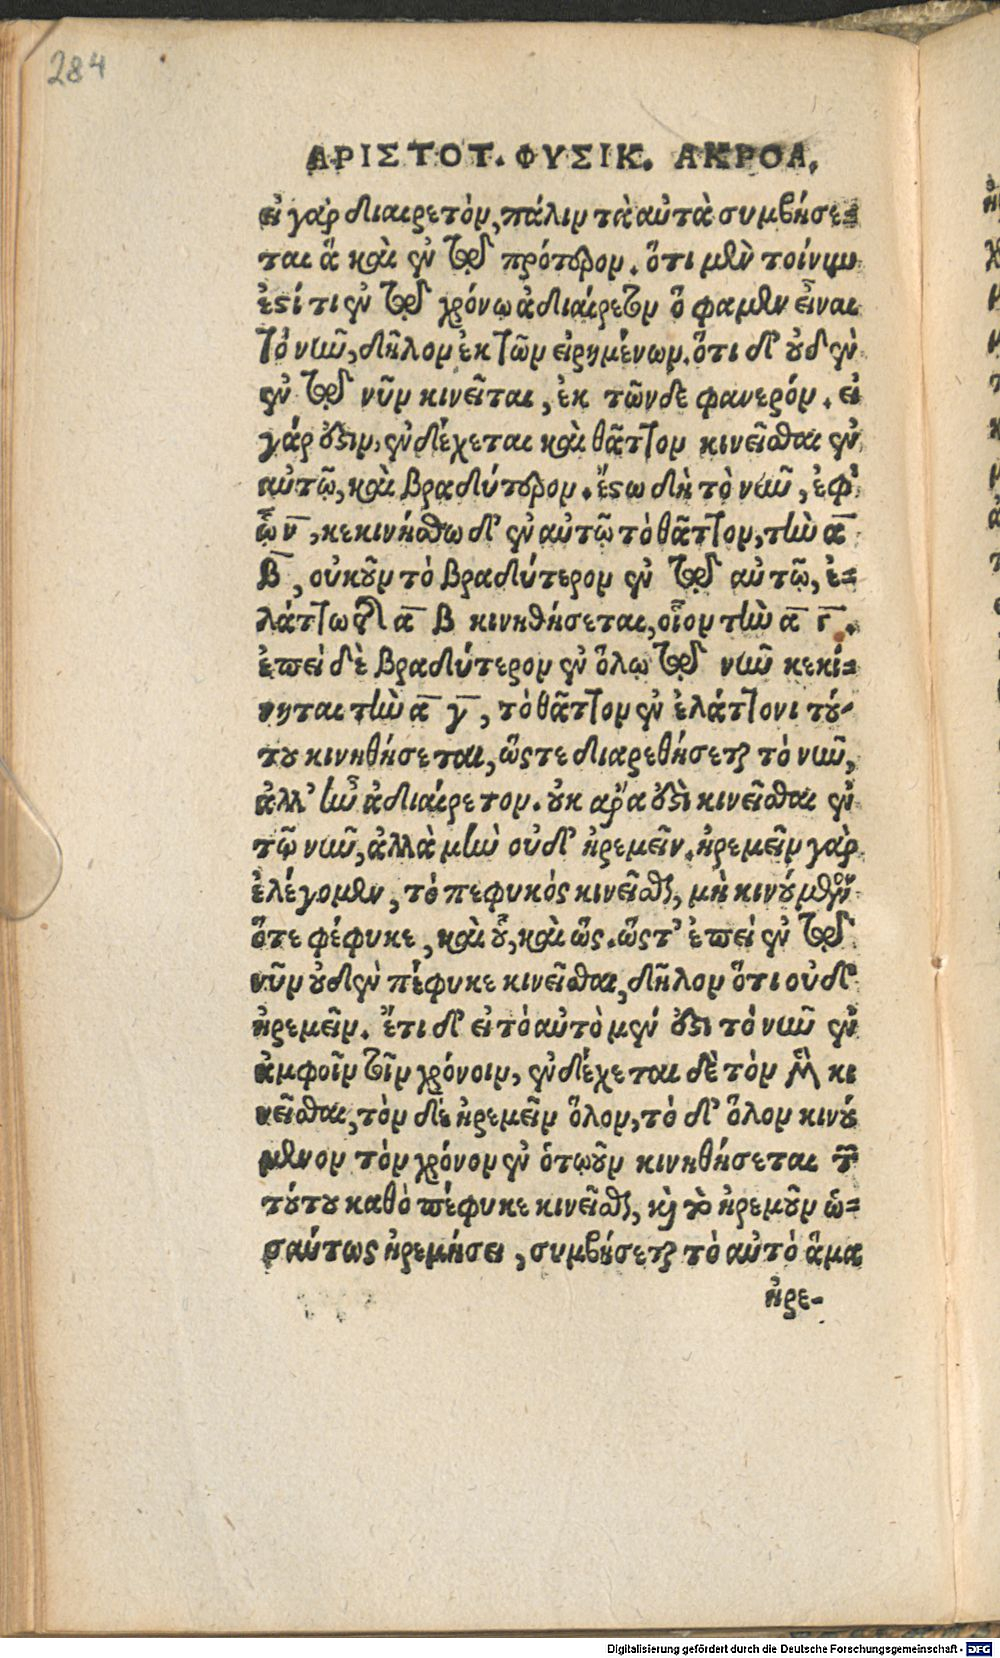 284
ΑΡΙΣΤΟΤ. ΦΥΣΙΚ. ΑΚΡΟΑ.
εἰ γὰρ διαιρετὸν, πάλιν τὰ αὐτὰ συμβήσε=
ται ἃ καὶ ἐν τῷ πρότερον. ὅτι μὲν τοίνυν
ἐστί τι ἐν τῷ χρόνῳ ἀδιαίρετον ὅ φαμεν εἶναι
τὸ νῦν, δῆλον ἐκ τῶν εἰρημένων. ὅτι δ' οὐδὲν
ἐν τῷ νῦν κινεῖται, ἐκ τῶνδε φανερόν. εἰ
γάρ ἐστιν, ἐνδέχεται καὶ θᾶττον κινεῖσθαι ἐν
αὐτῷ, καὶ βραδύτερον. ἔστω δὴ τὸ νῦν, ἐφ'
ᾧ ν̅, κεκινήσθω δ' ἐν αὐτῷ τὸ θᾶττον, τὴν α̅
β̅, οὐκοῦν τὸ βραδύτερον ἐν τῷ αὐτῷ, ἐ=
λάττω τῆς α̅ β κινηθήσεται, οἷον τὴν α̅ γ̅.
ἐπεὶ δὲ βραδύτερον ἐν ὅλῳ τῷ νῦν κεκί=
νηται τὴν α̅ γ̅, τὸ θᾶττον ἐν ἐλάττονι τού-
του κινηθήσεται, ὥστε διαρεθήσεται τὸ νῦν,
ἀλλ' ἦν ἀδιαίρετον. οὐκ ἄρα ἐστὶ κινεῖσθαι ἐν
τῷ νῦν, ἀλλὰ μὴν οὐδ' ἠρεμεῖν. ἠρεμεῖν γὰρ
ἐλέγομεν, τὸ πεφυκὸς κινεῖσθαι, μὴ κινούμενον
ὅτε φέφυκε, καὶ οὗ, καὶ ὥς. ὥστ' ἐπεὶ ἐν τῷ
νῦν οὐδὲν πέφυκε κινεῖσθαι, δῆλον ὅτι οὐδ'
ἠρεμεῖν. ἔτι δ' εἰ τὸ αὐτὸ μέν ἐστι τὸ νῦν ἐν
ἀμφοῖν τοῖν χρόνοιν, ἐνδέχεται δὲ τὸν μὲν κι
νεῖσθαι, τὸν δὲ ἠρεμεῖν ὅλον, τὸ δ' ὅλον κινού
μενον τὸν χρόνον ἐν ὁτῳοῦν κινηθήσεται τῶν
τούτου καθὸ πέφυκε κινεῖσθαι, καὶ τὸ ἠρεμοῦν ὡ=
σαύτως ἠρεμήσει, συμβήσεται τὸ αὐτὸ ἅμα
ἠρε-
Digitalisierung gefördert durch die Deutsche Forschungsgemeinschaft - DFG